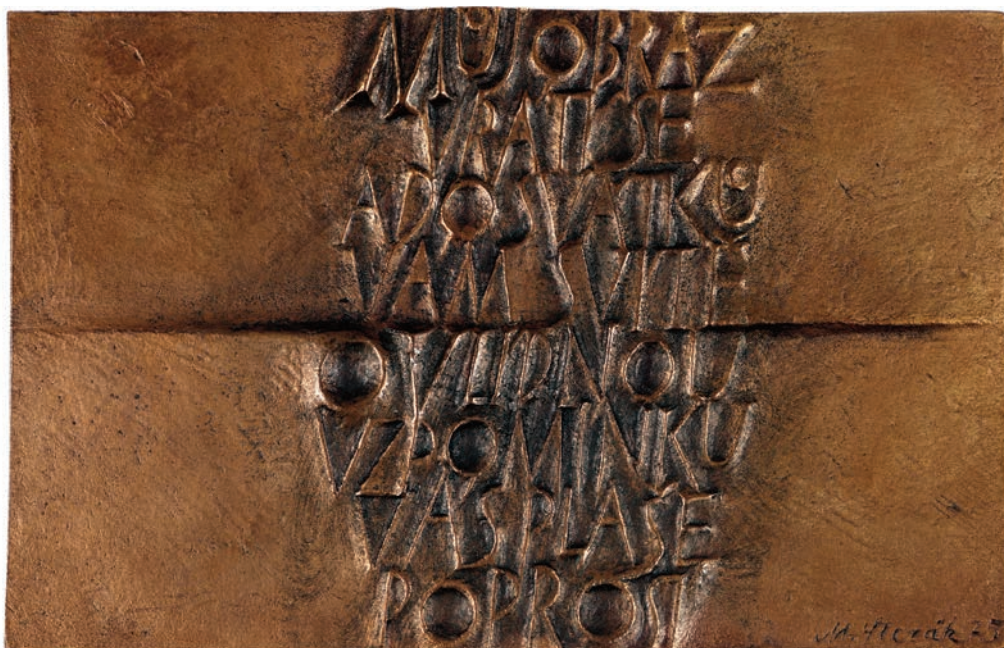 MŮJ OBRAZ
VRATÍ SE
A DO SVÁTKŮ
VÁM SVÍTÍ
O VLÍDNOU
VZPOMÍNKU
VÁS PLAŠE
POPROSÍ